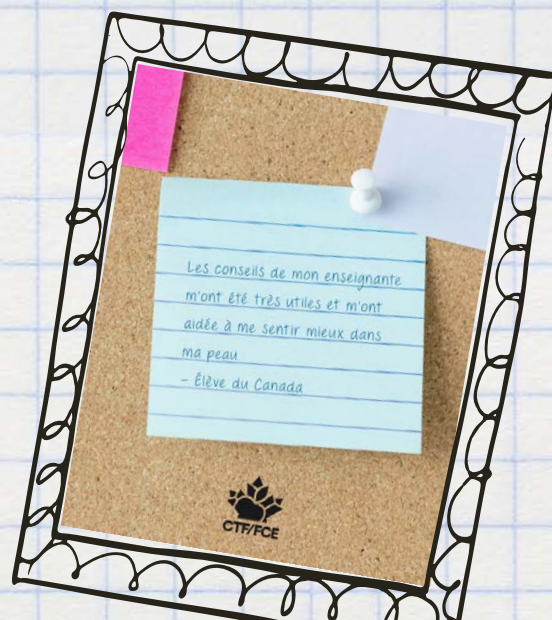 Les conseils de mon enseignante
m'ont été très utiles et m'ont
aidée à me sentir mieux dans
ma peau
- Élève du Canada
CTF/FCE